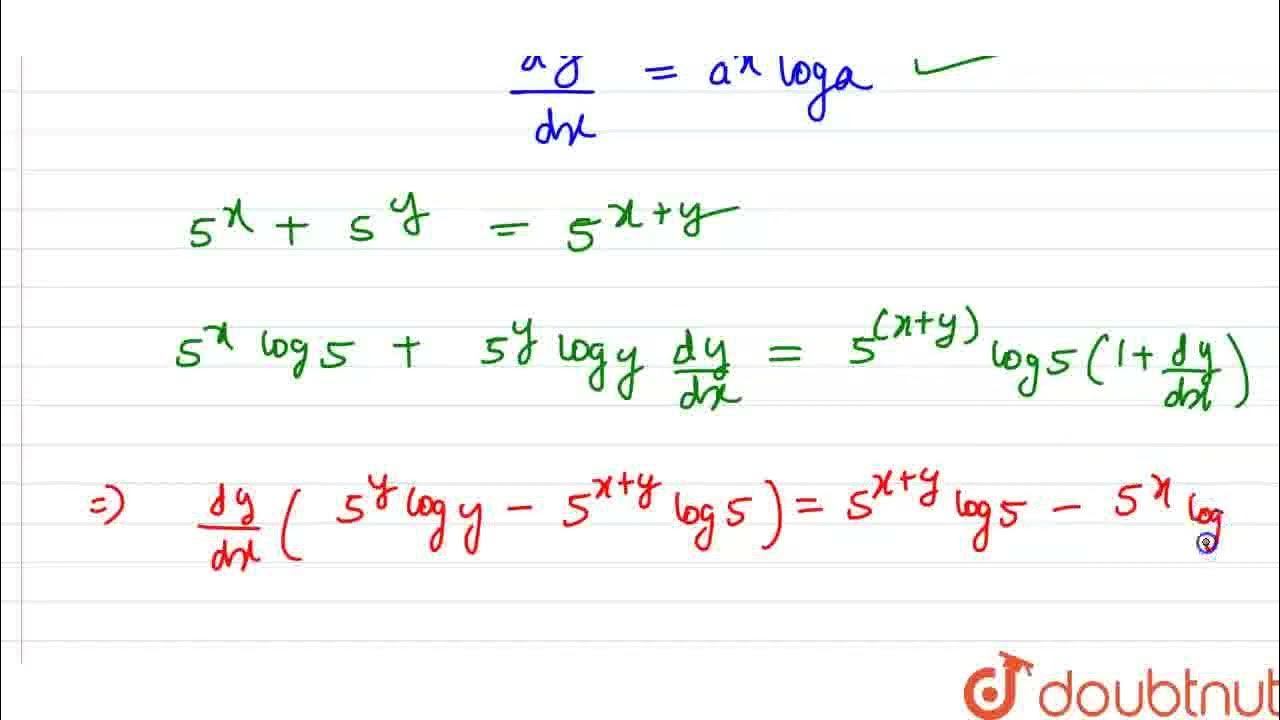 dy/dx = a^x log a ✓
5^x + 5^y = 5^(x+y)
5^x log 5 + 5^y log y dy/dx = 5^(x+y) log 5 (1 + dy/dx)
=> dy/dx ( 5^y log y - 5^(x+y) log 5 ) = 5^(x+y) log 5 - 5^x log
doubtnut